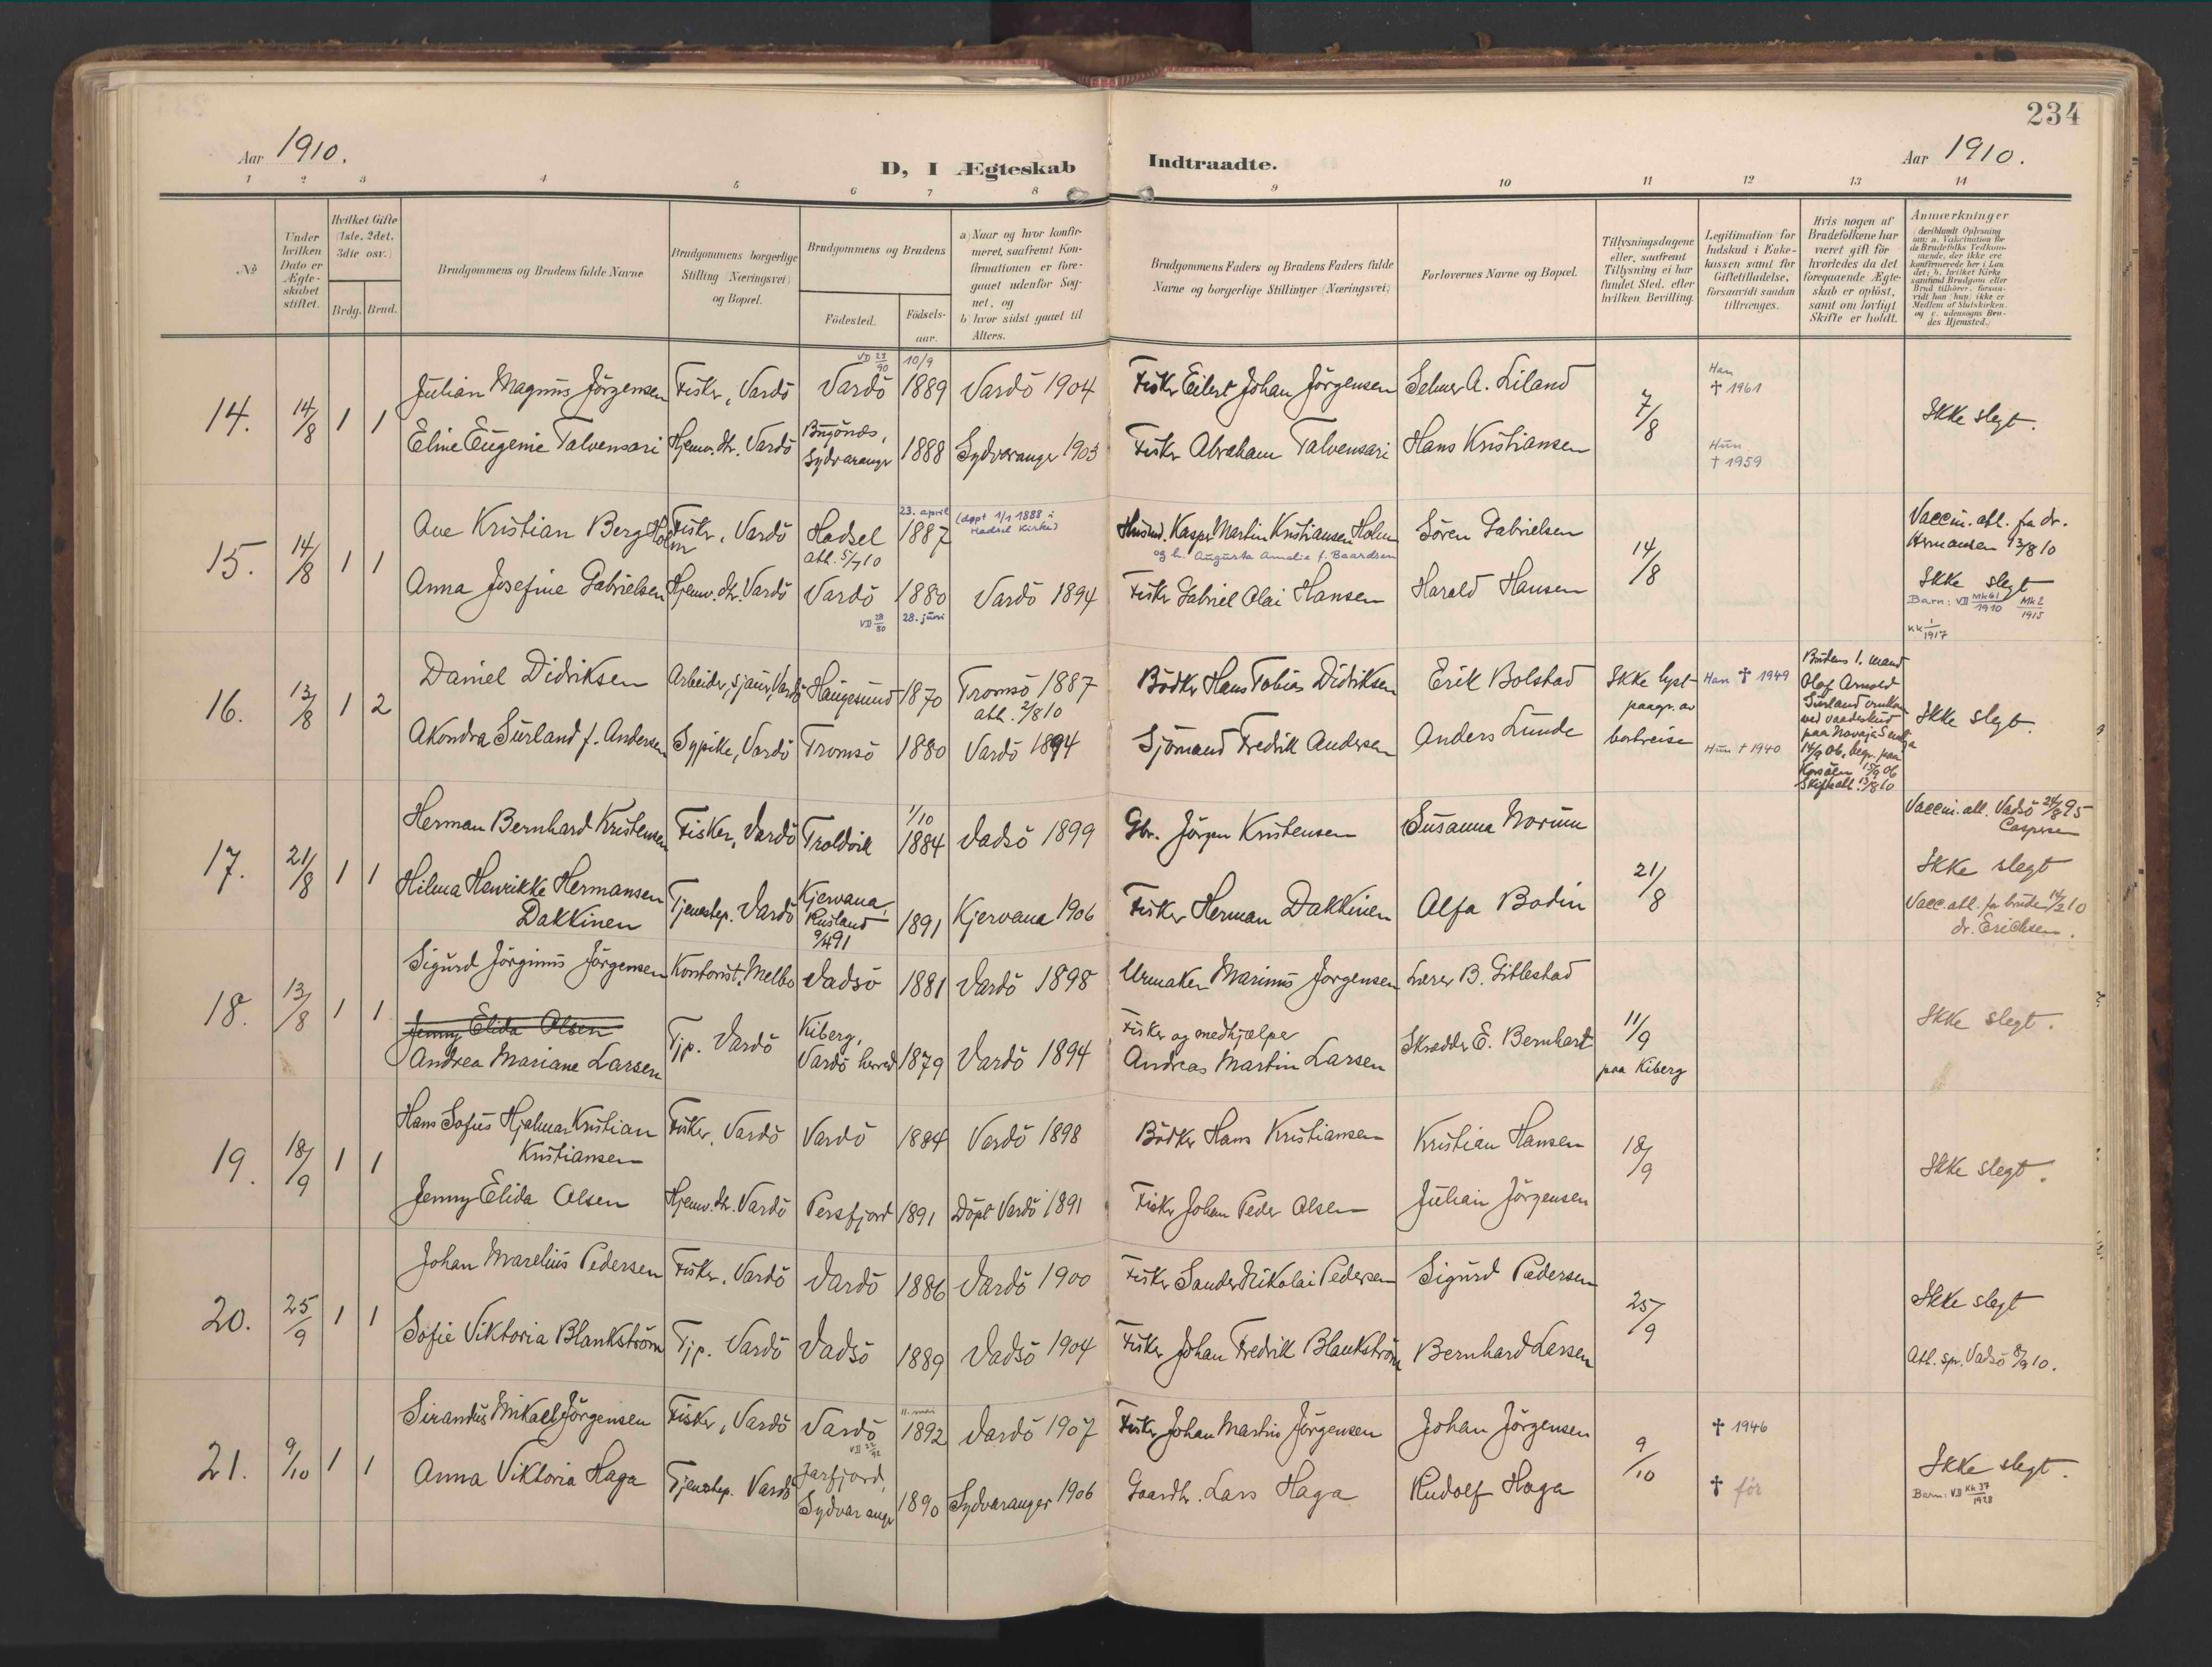 234
Aar 1910.
D, I Ægteskab Indtraadte.
Aar 1910.
1 2 3 4 5 6 7 8 9 10 11 12 13 14
No
Under hvilken Dato er Ægteskabet stiftet.
Hvilket Gifte (1ste, 2det, 3die osv.)
Brdg. Brud.
Brudgommens og Brudens fulde Navne
Brudgommens borgerlige Stilling (Næringsvei) og Bopæl.
Brudgommens og Brudens
Födested.
Födsels-aar.
a) Naar og hvor konfirmeret, saafremt Konfirmationen er foregaaet udenfor Sognet, og
b) hvor sidst gaaet til Alters.
Brudgommens Faders og Brudens Faders fulde Navne og borgerlige Stillinger (Næringsvei)
Forlovernes Navne og Bopæl.
Tillysningsdagene eller, saafremt Tillysning ei har fundet Sted, efter hvilken Bevilling.
Legitimation for Indskud i Enkekassen samt for Giftetilladelse, forsaavidt saadan tiltrænges.
Hvis nogen af Brudefolkene har været gift för hvorledes da det foregaaende Ægteskab er oplöst, samt om lovligt Skifte er holdt.
Anmærkninger (deriblandt Oplysning om: a. Vakcination for de Brudefolks Vedkommende, der ikke ere konfirmerede her i Landet; b. hvilket Kirkesamfund Brudgom eller Brud tilhörer, forsaavidt han (hun) ikke er Medlem af Statskirken, og c. udensogns Brudes Hjemsted.)
14. 14/8 1 1
Julian Magnus Jörgensen Fisker, Vardö Vardö VD 23/90 10/9 1889 Vardö 1904 Fisker Eilert Johan Jörgensen Selmer A. Liland 7/8 Han † 1961 Ikke slegt.
Eline Eugenie Talvensari Hjemv. dtr. Vardö Bugönæs, Sydvaranger 1888 Sydvaranger 1903 Fisker Abraham Talvensari Hans Kristiansen Hun † 1959
15. 14/8 1 1
Ave Kristian Berg Holm Fisker, Vardö Hadsel att. 5/7 10 23. april 1887 (döpt 1/1 1888 i Hadsel Kirke) Husmd. Kasper Martin Kristiansen Holm Sören Gabrielsen 14/8 Vaccin. att. fra dr. Hermansen 13/8 10
og h. Augusta Amalie f. Baardsen
Anna Josefine Gabrielsen Hjemv. dtr. Vardö Vardö VD 28/80 1880 28. juni Vardö 1894 Fisker Gabriel Olai Hansen Harald Hansen Ikke slegt
Barn: VD MK61/1910 MK2/1915
KK 1/1917
16. 13/8 1 2
Daniel Didriksen Arbeider, sjauer, Vardö Haugesund 1870 Tromsö 1887 att. 2/8 10 Bödker Hans Tobias Didriksen Erik Bolstad Ikke lyst paagr. av bortreise Han † 1949
Akondra Surland f. Andersen Sypike, Vardö Tromsö 1880 Vardö 1894 Sjömand Fredrik Andersen Anders Lunde Hun † 1940 Ikke slegt.
Brudens 1. mand Olaf Arnold Surland omkom ved vaadeskud paa Novaja Semlja 14/9 06, begr. paa 15/9 06 Skifteatt. 13/8 10
17. 21/8 1 1
Herman Bernhard Kristensen Fisker, Vardö Troldvik 1/10 1884 Vadsö 1899 Gbr. Jörgen Kristensen Susanna Norum 21/8 Vaccin. att. Vadsö 24/8 95 Caspersen
Ikke slegt
Hilma Henrikke Hermansen Dakkinen Tjenestep. Vardö Kjervana, Rusland 9/4 91 1891 Kjervana 1906 Fisker Herman Dakkinen Alfa Bodin Vacc. att. for bruden 14/2 10 dr. Erichsen.
18. 13/8 1 1
Sigurd Jörginus Jörgensen Kontorist, Melbo Vadsö 1881 Vardö 1898 Urmaker Marinus Jörgensen Lærer B. Gitlestad 11/9 paa Kiberg Ikke slegt.
Jenny Elida Olsen
Andrea Mariane Larsen Tjp. Vardö Kiberg, Vardö herred 1879 Vardö 1894 Fisker og medhjælper Andreas Martin Larsen Skrædder E. Bernhart
19. 18/9 1 1
Hans Sofus Hjalmar Kristian Kristiansen Fisker, Vardö Vardö 1884 Vardö 1898 Bödker Hans Kristiansen Kristian Hansen 18/9 Ikke slegt.
Jenny Elida Olsen Hjemv. dtr. Vardö Persfjord 1891 Döpt Vardö 1891 Fisker Johan Peder Olsen Julian Jörgensen
20. 25/9 1 1
Johan Marelius Pedersen Fisker, Vardö Vardö 1886 Vardö 1900 Fisker Sander Nikolai Pedersen Sigurd Pedersen 25/9 Ikke slegt
Sofie Viktoria Blankström Tjp. Vardö Vadsö 1889 Vadsö 1904 Fisker Johan Fredrik Blankström Bernhard Larsen Att. spr. Vadsö 8/9 10.
21. 9/10 1 1
Sirandus Mikael Jörgensen Fisker, Vardö Vardö VD 22/92 11. mai 1892 Vardö 1907 Fisker Johan Martin Jörgensen Johan Jörgensen 9/10 † 1946 Ikke slegt.
Anna Viktoria Haga Tjenestep. Vardö Jarfjord, Sydvaranger 1890 Sydvaranger 1906 Gaardbr. Lars Haga Rudolf Haga † för Barn: VD KK 37/1928